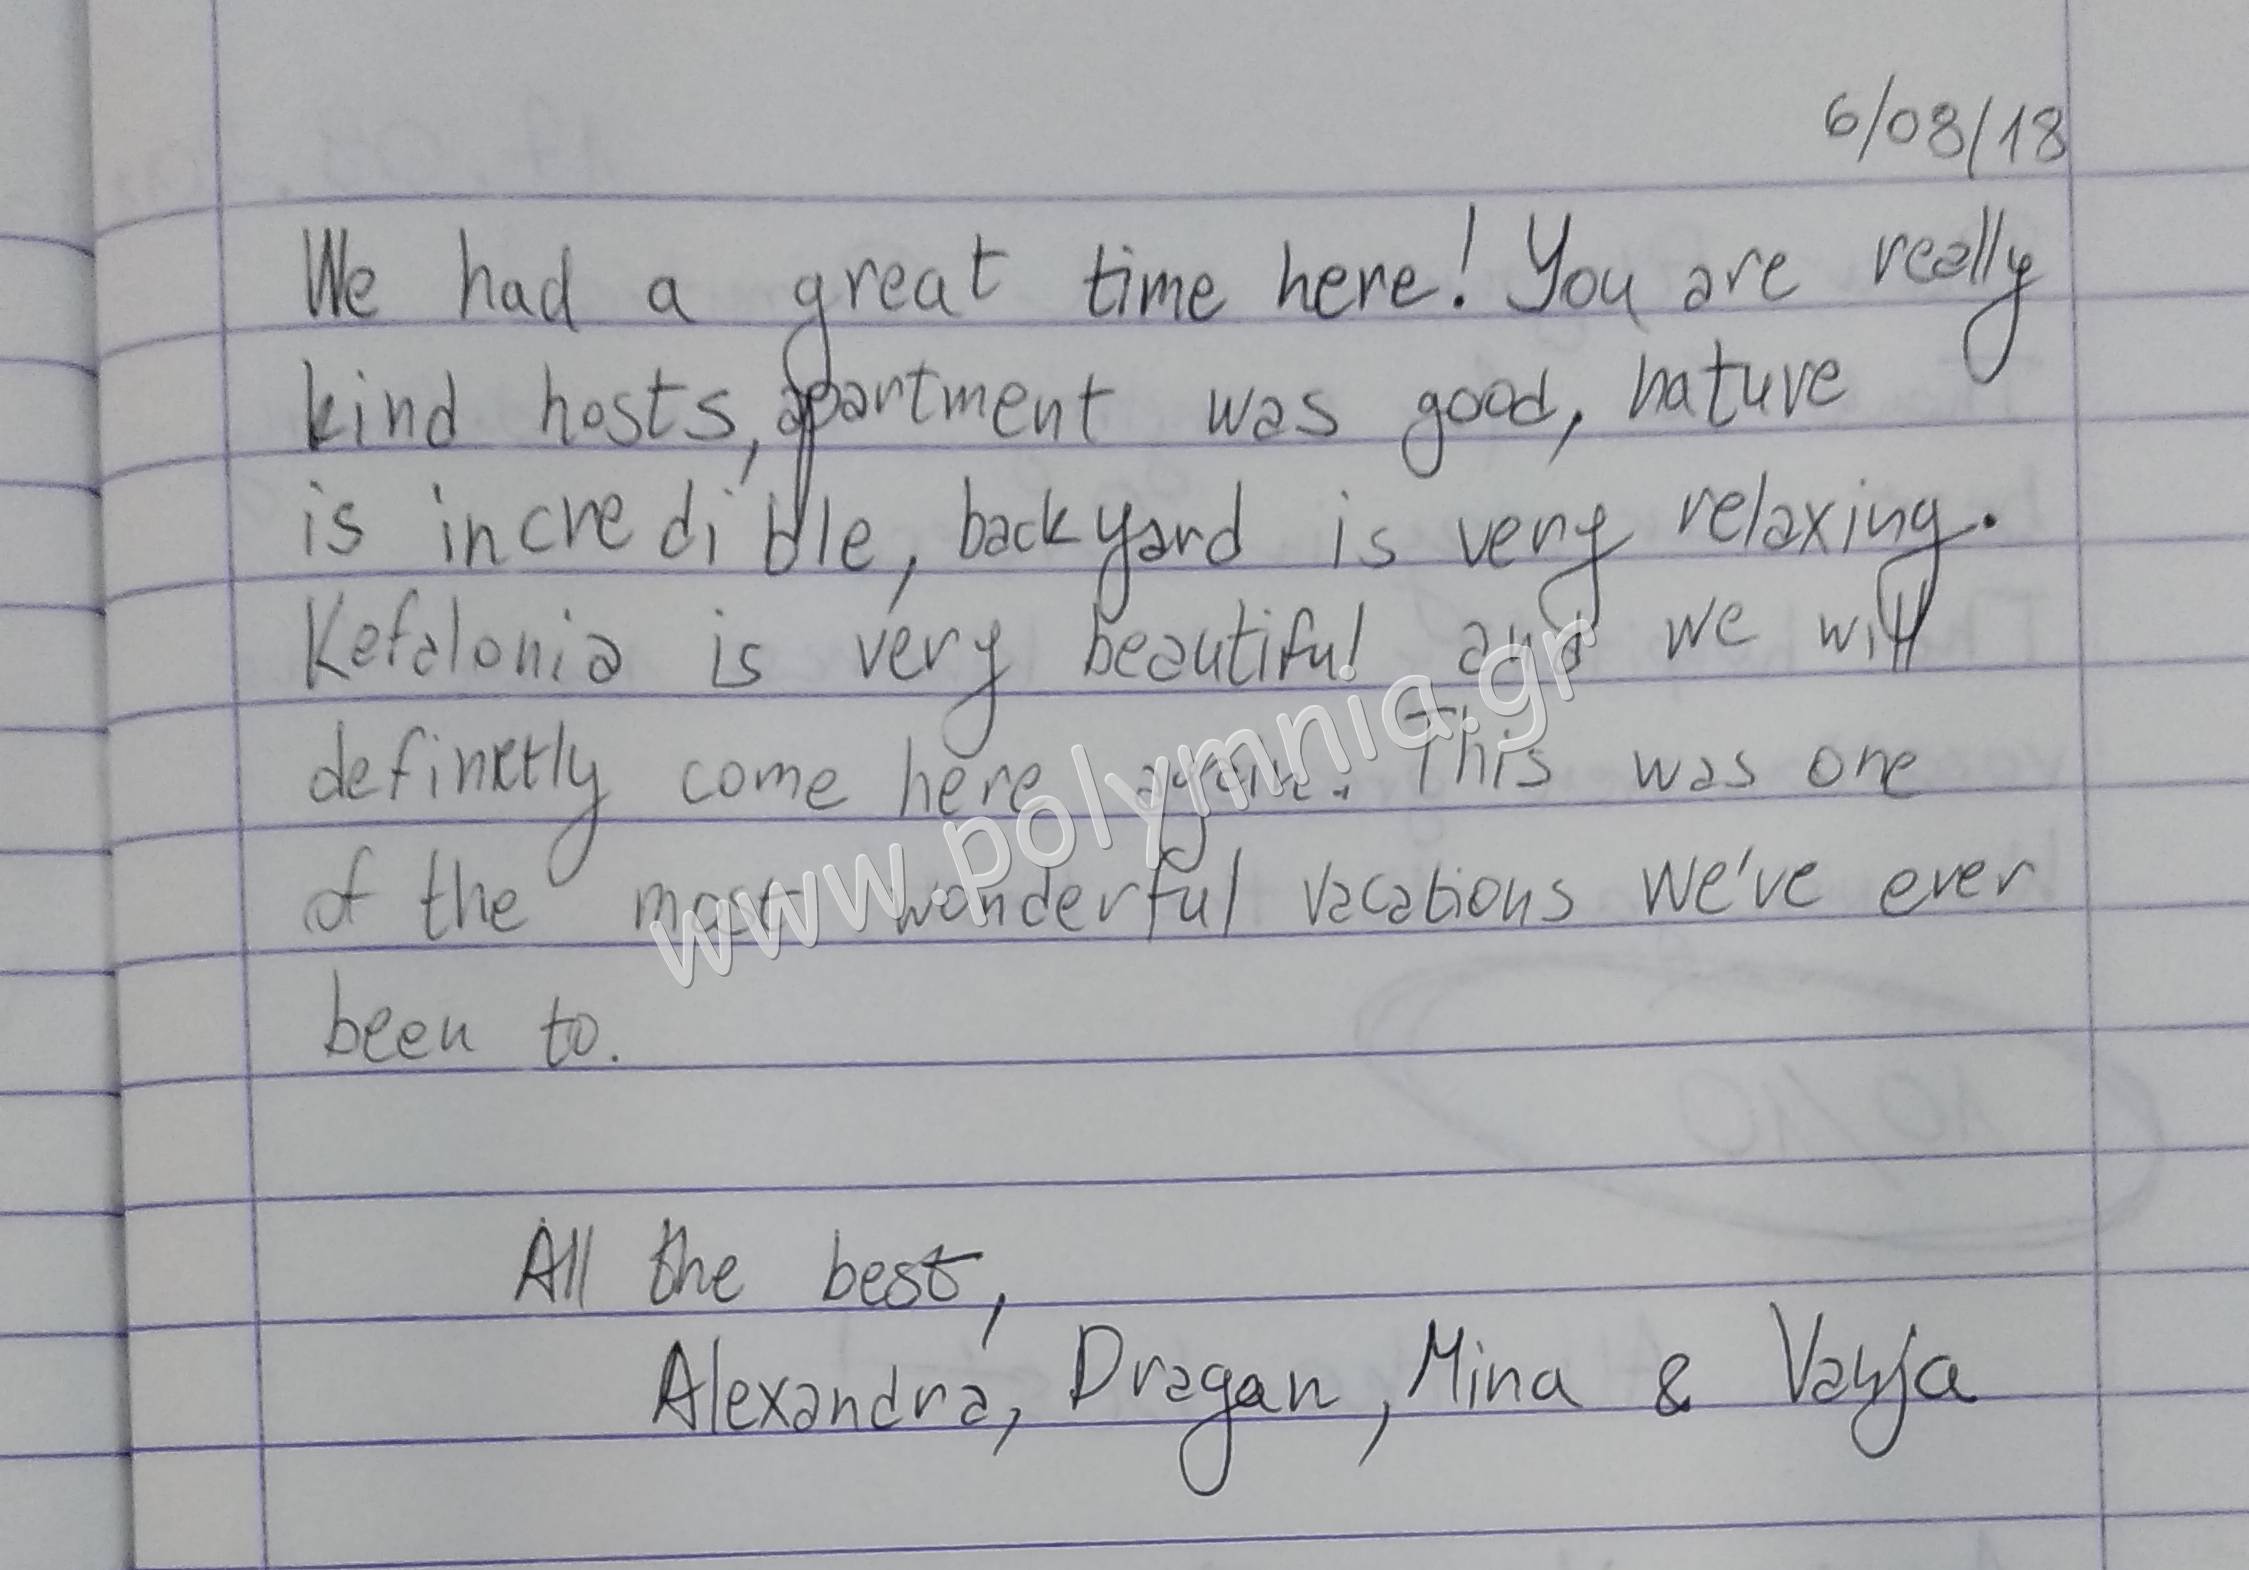 6/08/18
We had a great time here! You are really
kind hosts, apartment was good, nature
is incredible, backyard is very relaxing.
Kefalonia is very beautiful and we will
definetly come here again. This was one
of the most wonderful vacations we've ever
been to.
All the best,
Alexandra, Dragan, Mina & Vanja
www.polymnia.gr
10/10